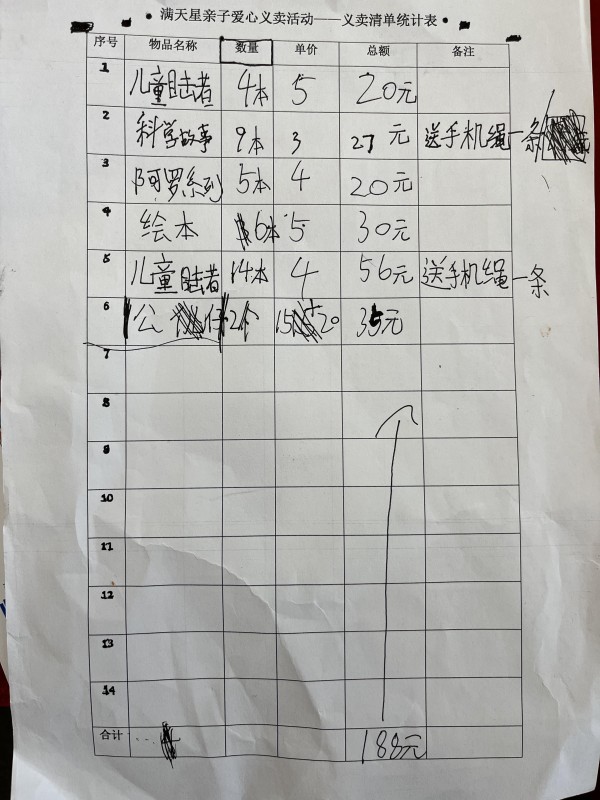 满天星亲子爱心义卖活动——义卖清单统计表
序号 物品名称 数量 单价 总额 备注
1 儿童目击者 4本 5 20元
2 科学故事 9本 3 27元 送手机绳一条
3 阿罗系列 5本 4 20元
4 绘本 6本 5 30元
5 儿童目击者 14本 4 56元 送手机绳一条
6 公仔 2个 15+20 35元
7
8
9
10
11
12
13
14
合计 188元